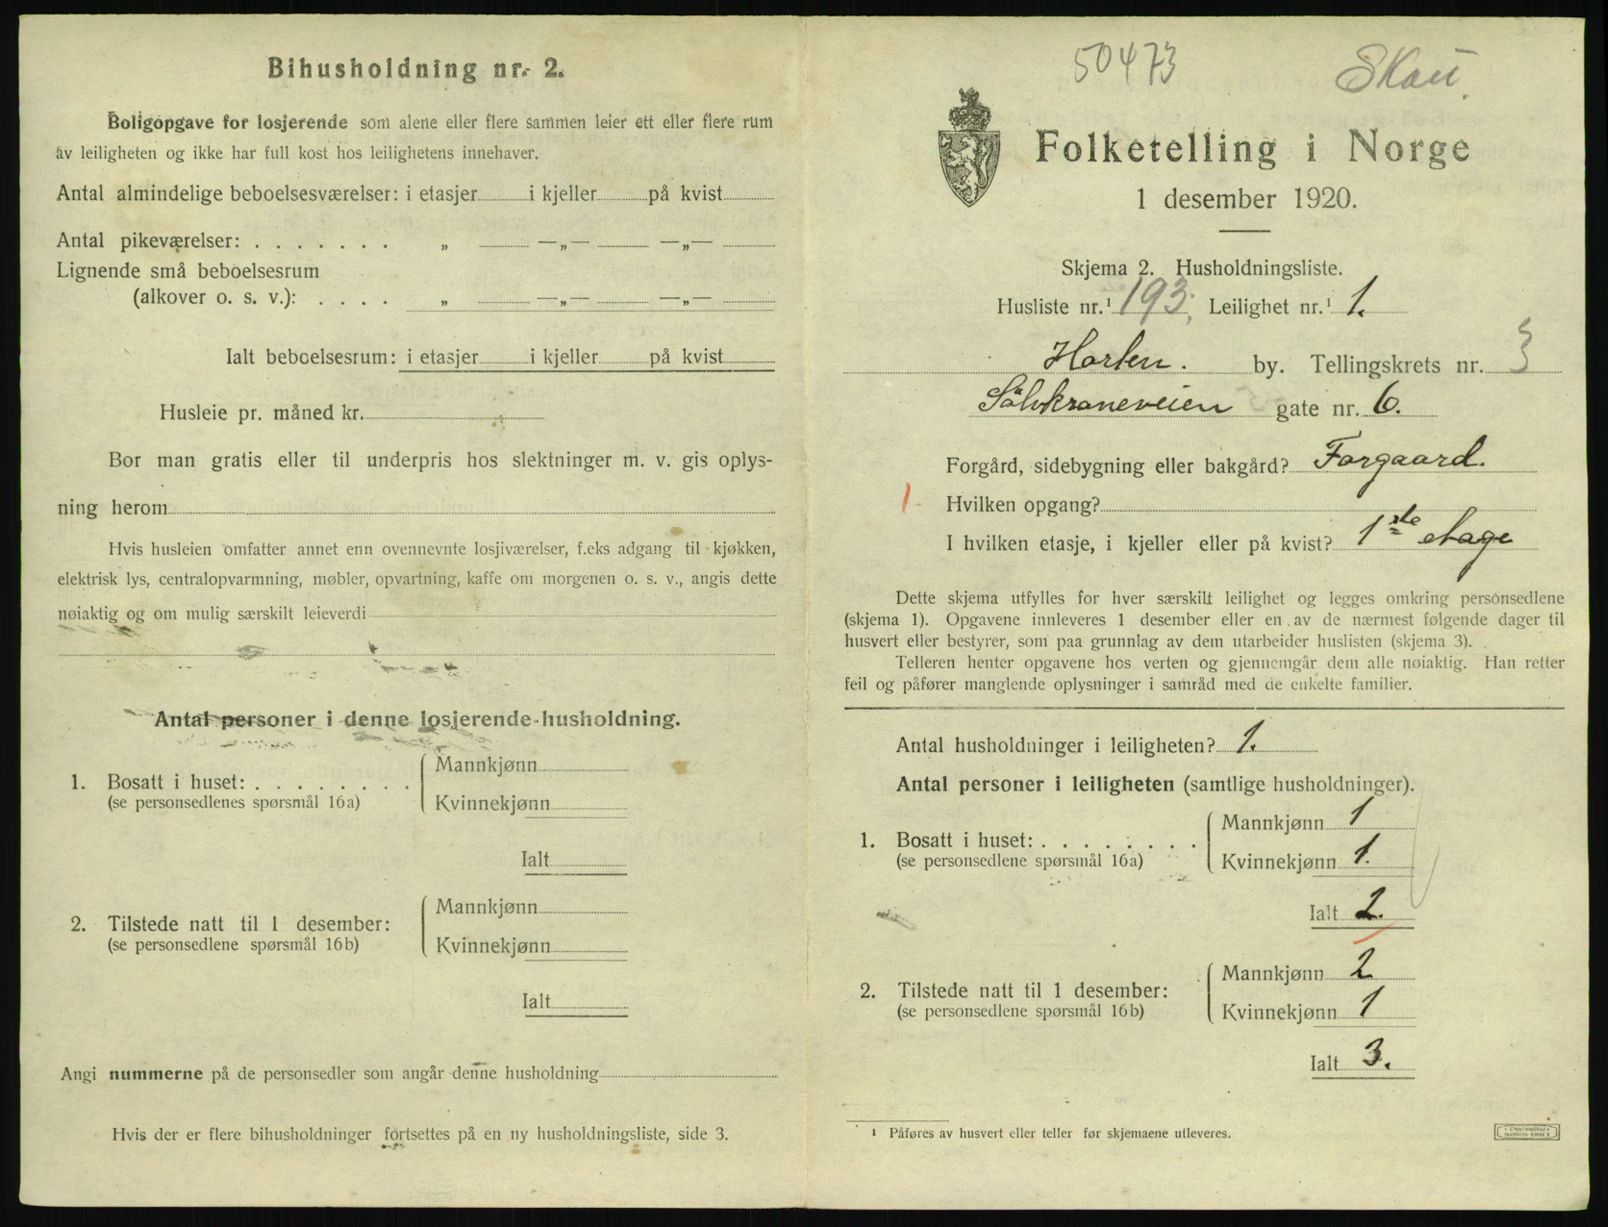 Bihusholdning nr. 2.
Boligopgave for losjerende som alene eller flere sammen leier ett eller flere rum
av leiligheten og ikke har full kost hos leilighetens innehaver.
Antal almindelige beboelsesværelser: i etasjer i kjeller på kvist
Antal pikeværelser: . . . . . . . „ —„— —„—
Lignende små beboelsesrum
(alkover o. s. v.): . . . . „ —„— —„—
Ialt beboelsesrum: i etasjer i kjeller på kvist
Husleie pr. måned kr.
Bor man gratis eller til underpris hos slektninger m. v. gis oplys-
ning herom
Hvis husleien omfatter annet enn ovennevnte losjiværelser, f.eks adgang til kjøkken,
elektrisk lys, centralopvarmning, møbler, opvartning, kaffe om morgenen o. s. v., angis dette
nøiaktig og om mulig særskilt leieverdi
Antal personer i denne losjerende-husholdning.
1. Bosatt i huset: . . . . . . . . Mannkjønn
(se personsedlenes spørsmål 16a) Kvinnekjønn
Ialt
2. Tilstede natt til 1 desember: Mannkjønn
(se personsedlene spørsmål 16b) Kvinnekjønn
Ialt
Angi nummerne på de personsedler som angår denne husholdning
Hvis der er flere bihusholdninger fortsettes på en ny husholdningsliste, side 3.
50473 Skau.
Folketelling i Norge
1 desember 1920.
Skjema 2. Husholdningsliste.
Husliste nr.¹ 193; Leilighet nr.¹ 1.
Horten. by. Tellingskrets nr. 3
Sölvkroneveien gate nr. 6.
Forgård, sidebygning eller bakgård? Forgaard.
1. Hvilken opgang?
I hvilken etasje, i kjeller eller på kvist? 1ste etage
Dette skjema utfylles for hver særskilt leilighet og legges omkring personsedlene
(skjema 1). Opgavene innleveres 1 desember eller en av de nærmest følgende dager til
husvert eller bestyrer, som paa grunnlag av dem utarbeider huslisten (skjema 3).
Telleren henter opgavene hos verten og gjennemgår dem alle nøiaktig. Han retter
feil og påfører manglende oplysninger i samråd med de enkelte familier.
Antal husholdninger i leiligheten? 1.
Antal personer i leiligheten (samtlige husholdninger).
1. Bosatt i huset: . . . . . . . . Mannkjønn 1
(se personsedlene spørsmål 16a) Kvinnekjønn 1.
Ialt 2.
2. Tilstede natt til 1 desember: Mannkjønn 2
(se personsedlene spørsmål 16b) Kvinnekjønn 1
Ialt 3.
¹ Påføres av husvert eller teller før skjemaene utleveres.